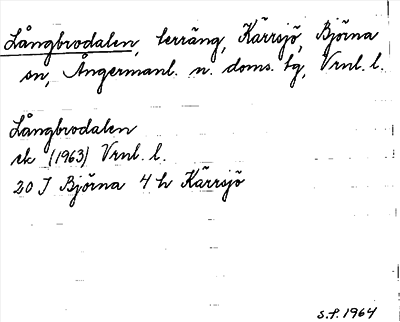 Långbrodalen, terräng, Kärrsjö, Björna
sn, Ångermanl. n. doms. tg, Vrnl. l.
Långbrodalen
ek (1963) Vrnl. l.
20 I Björna 4 h Kärrsjö
S.F. 1964